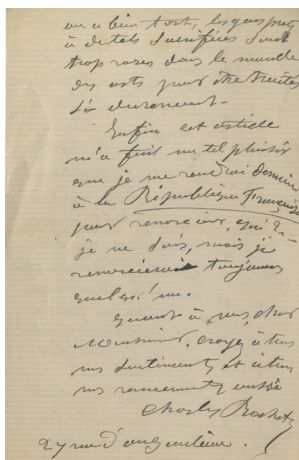 on a bien tort, les gens prets
à de tels sacrifices sont
trop rares dans le monde
des arts pour être traités
si durement.
Enfin cet article
m'a fait un tel plaisir
que je me rendrai demain
à la République Française
pour remercier, qui ?
je ne sais, mais je
remercierai toujours
quelqu'un.
Quant à vous, cher
Monsieur, croyez à tous
nos sentiments et à tous
nos remerciements
27 rue d'angoulême.